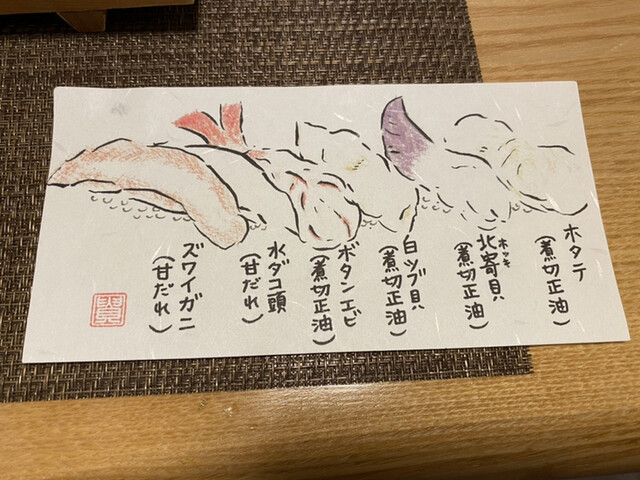 ホタテ
(煮切正油)
ホッキ
北寄貝
(煮切正油)
白ツブ貝
(煮切正油)
ボタンエビ
(煮切正油)
水ダコ頭
(甘だれ)
ズワイガニ
(甘だれ)